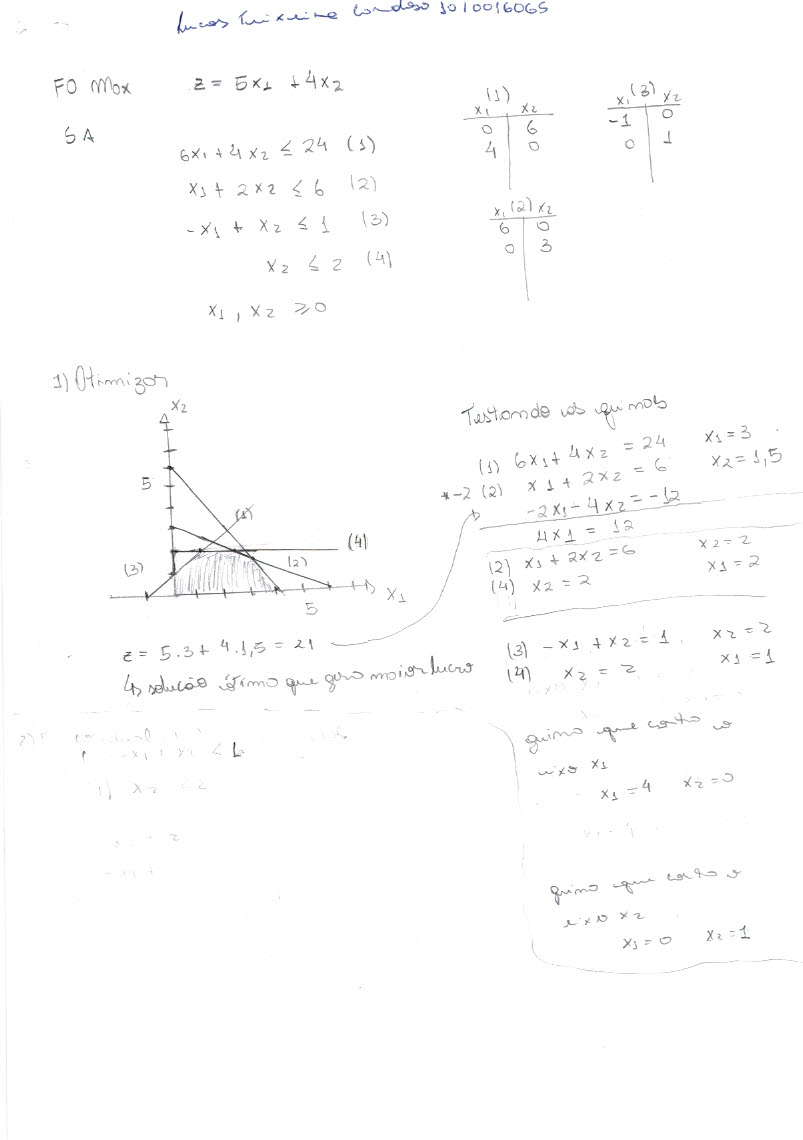 Lucas Teixeira Cardoso 1010016065
FO Max z = 5x1 + 4x2
SA
6x1 + 4x2 ≤ 24 (1)
x1 + 2x2 ≤ 6 (2)
-x1 + x2 ≤ 1 (3)
x2 ≤ 2 (4)
x1, x2 ≥ 0
(1)
x1 x2
0 6
4 0
x1 (3) x2
-1 0
0 1
x1 (2) x2
6 0
0 3
1) Otimizar
x2
5
(1)
(4)
(3)
(2)
5
x1
z = 5.3 + 4.1,5 = 21
↳ solução ótima que gera maior lucro
Testando as quinas
(1) 6x1 + 4x2 = 24 x1 = 3
*-2 (2) x1 + 2x2 = 6 x2 = 1,5
-2x1 - 4x2 = -12
4x1 = 12
(2) x1 + 2x2 = 6 x2 = 2
(4) x2 = 2 x1 = 2
(3) -x1 + x2 = 1 x2 = 2
(4) x2 = 2 x1 = 1
quina que corta o
eixo x1
x1 = 4 x2 = 0
quina que corta o
eixo x2
x1 = 0 x2 = 1